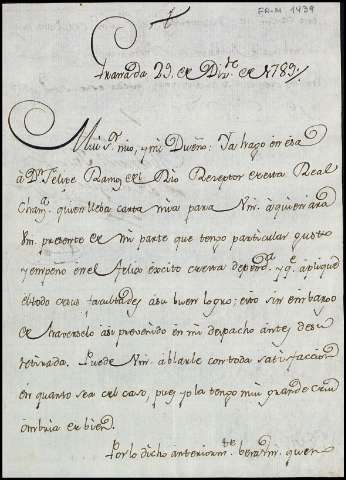 FR-M 1439
Granada 29. de Div.re de 1789./
Mui S.r mio, y mi Dueño: Ya hago en esa
à D.n Felipe Ramos del Rio Receptor de esta Real
Chan.a quien lleba carta mia para Vm. à quien ara
Vm. presente de mi parte que tengo particular gusto
y empeno en el felis éxcito de esta depend.a y q.e aplique
el todo de sus facultades à su buen logro; esto sin embargo
de haverselo asi prevenido en mi despacho àntes de su
retirada. Puede Vm. ablarle con toda satisfaccion
en quanto sea del caso, pues yo la tengo mui grande de su
ombria de bien.
Por lo dicho anteriorm.te bera Vm. quan